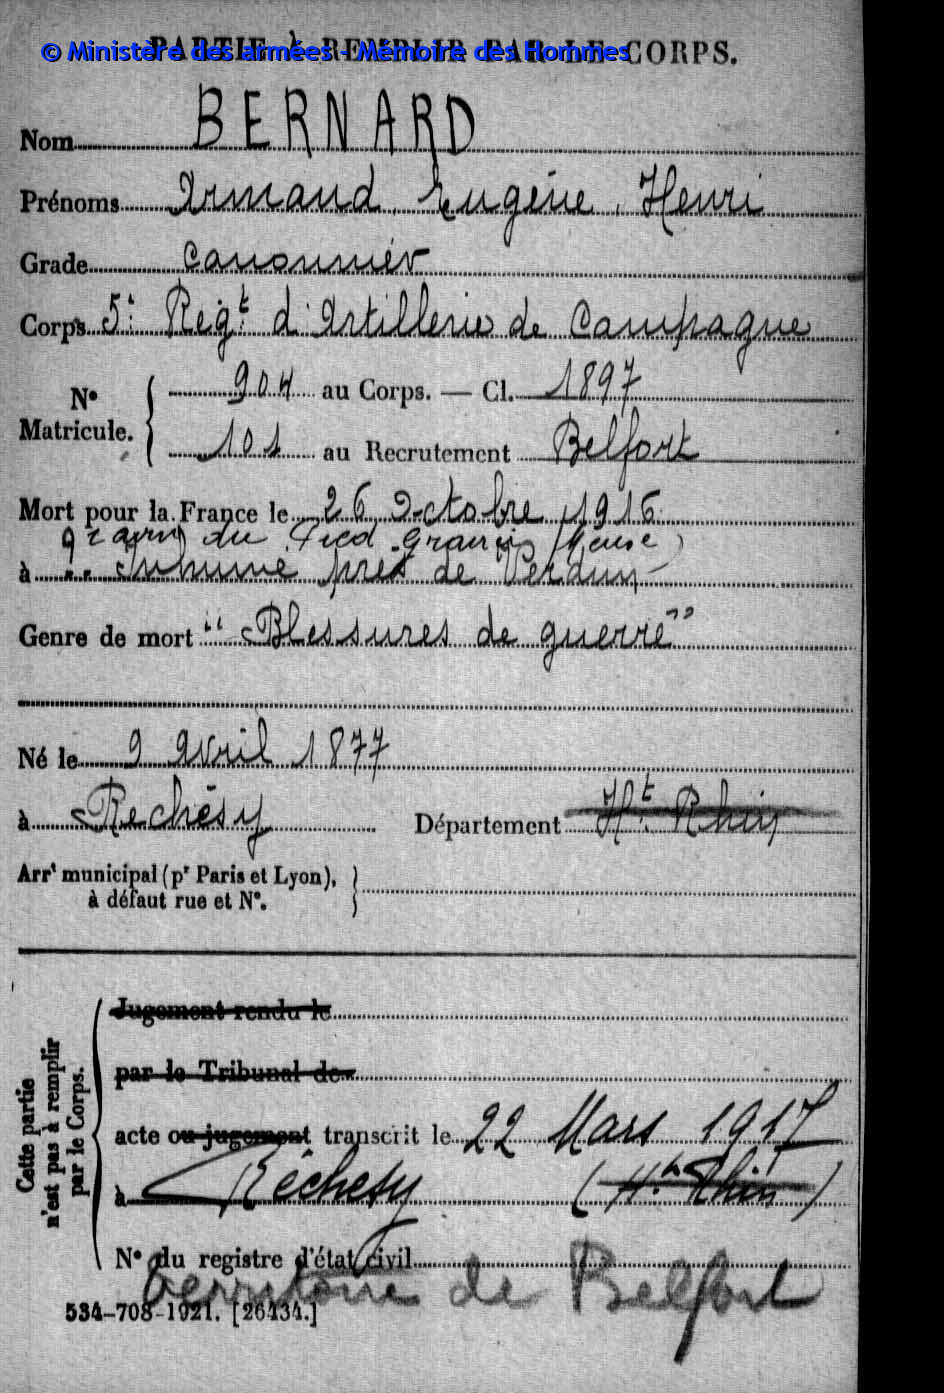 PARTIE À REMPLIR PAR LE CORPS.
© Ministère des armées - Mémoire des Hommes
Nom BERNARD
Prénoms Armand, Eugène, Henri
Grade Canonnier
Corps 5e Régt d'Artillerie de Campagne
No Matricule. 904 au Corps. — Cl. 1897
101 au Recrutement Belfort
Mort pour la France le 26 Octobre 1916
du Pied Gravier (Meuse)
à Inhumé près de Verdun
Genre de mort "Blessures de guerre"
Né le 9 Avril 1877
à Rechésy Département Ht Rhin
Arrt municipal (pr Paris et Lyon),
à défaut rue et No.
Cette partie
n'est pas à remplir
par le Corps.
Jugement rendu le
par le Tribunal de
acte ou jugement transcrit le 22 Mars 1917
à Réchésy (Ht Rhin)
No du registre d'état civil
territoire de Belfort
534-708-1921. [26434.]